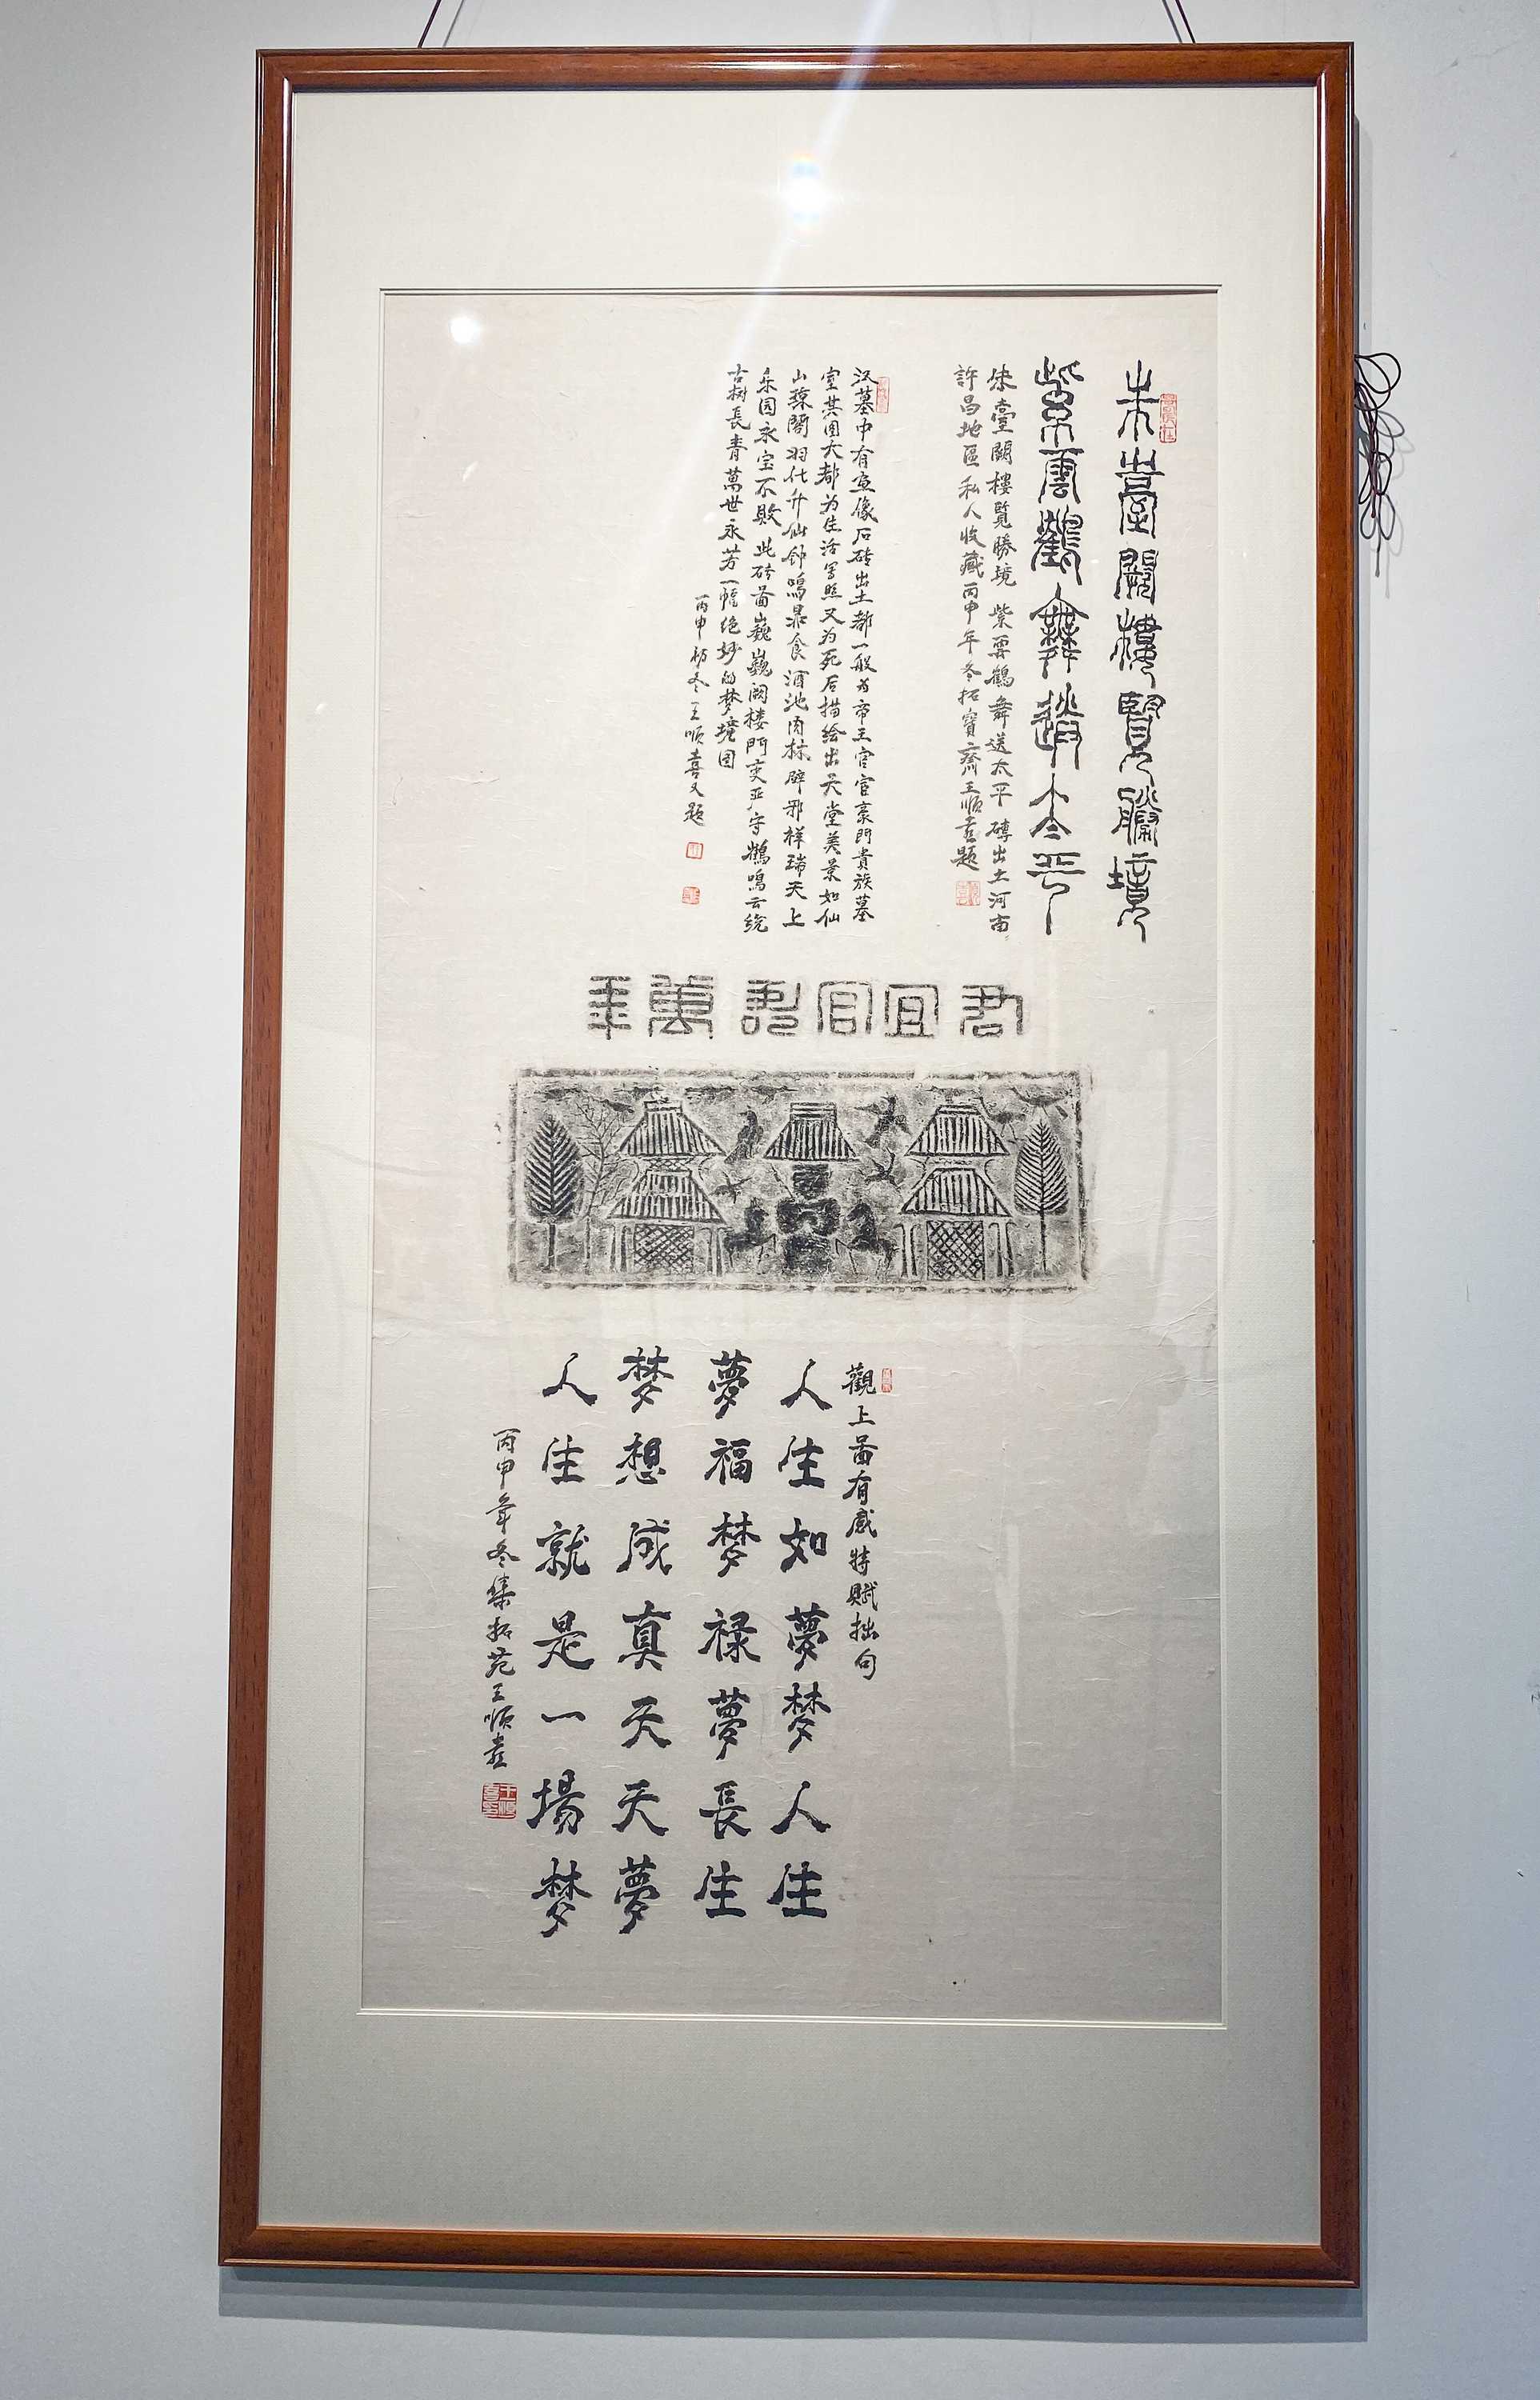 朱臺闕樓覽勝境
紫雲鶴舞送太平
朱臺闕樓覽勝境 紫雲鶴舞送太平 磚出土河南
許昌地區私人收藏丙申年冬拓寶齋王順喜題
汉墓中有画像石砖出土都一般为帝王官宦豪門貴族墓
室其图大都为生活写照又为死后描绘出天堂美景如仙
山瓊閣羽化升仙钟鳴鼎食酒池肉林辟邪祥瑞天上
乐园永宝不败此砖畵巍巍阙楼門吏严守鶴鳴云绕
古树長青萬世永芳一幅绝妙的梦境图
丙申初冬王順喜又题
君宜官秩萬年
觀上畵有感特賦拙句
人生如夢梦人生
夢福梦禄夢長生
梦想成真天天夢
人生就是一場梦
丙申年冬集拓苑王順喜